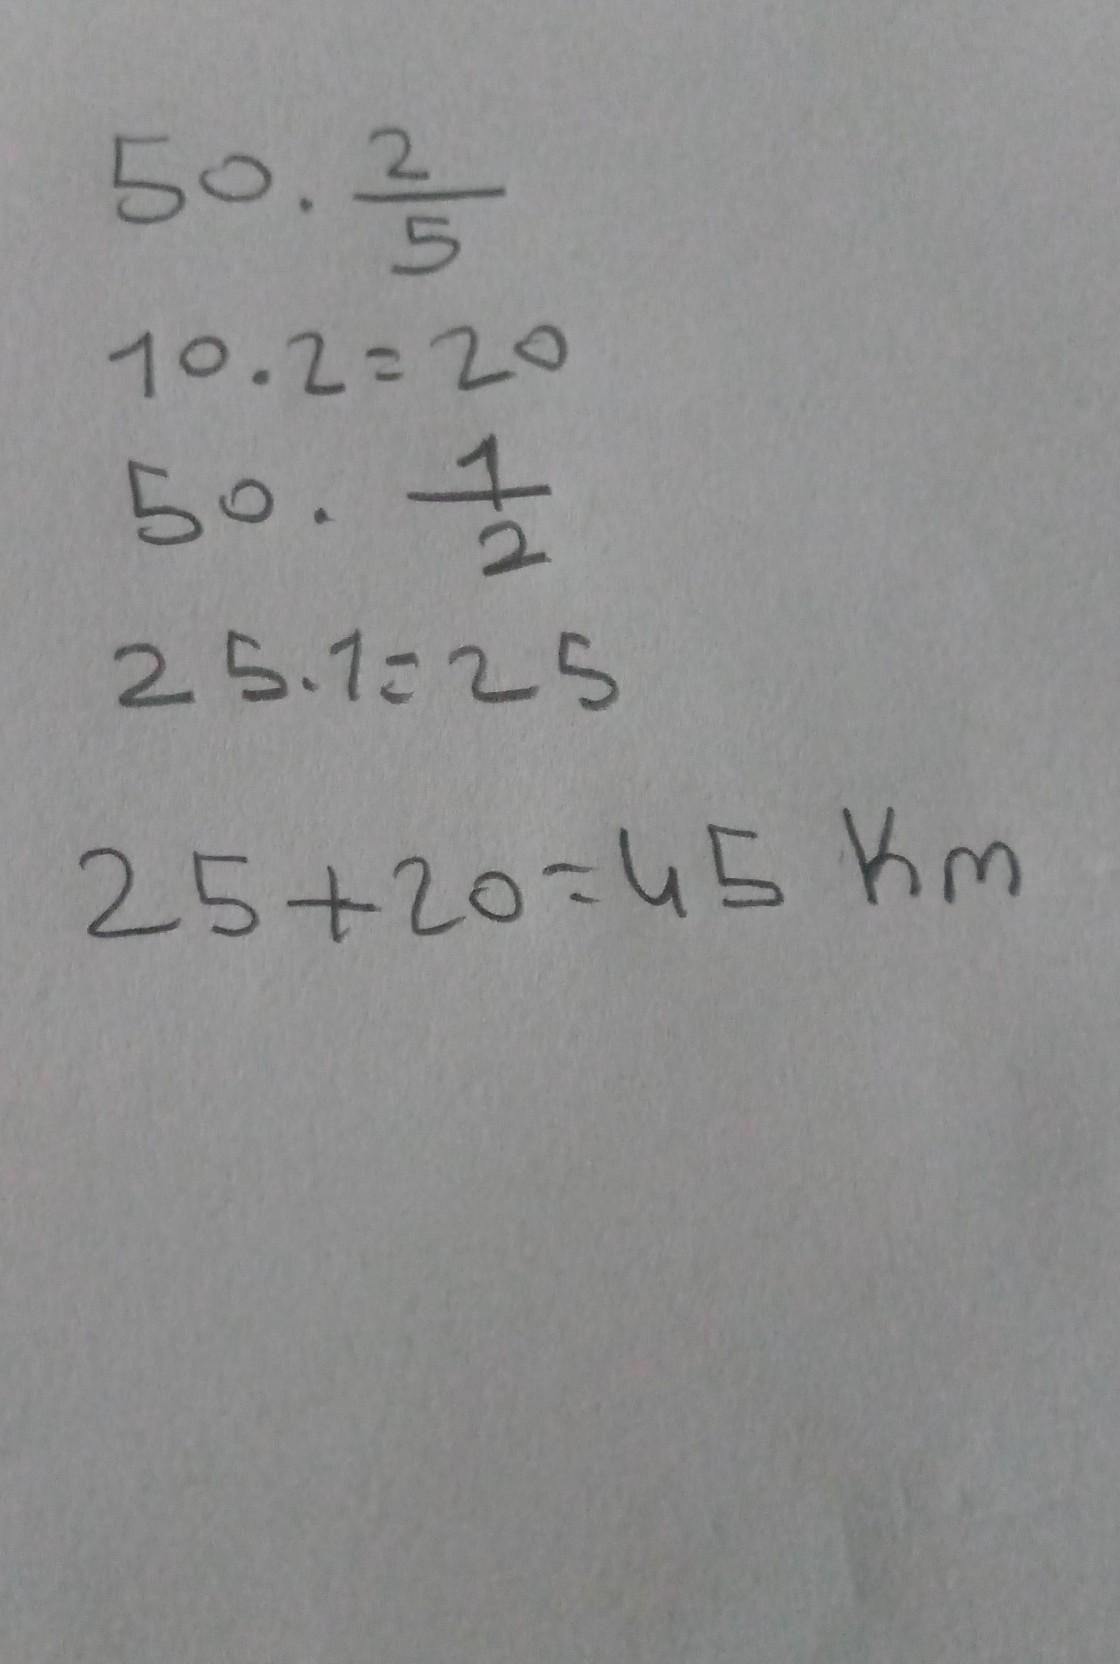 50 . 2/5
10 . 2 = 20
50 . 1/2
25 . 1 = 25
25 + 20 = 45 Km